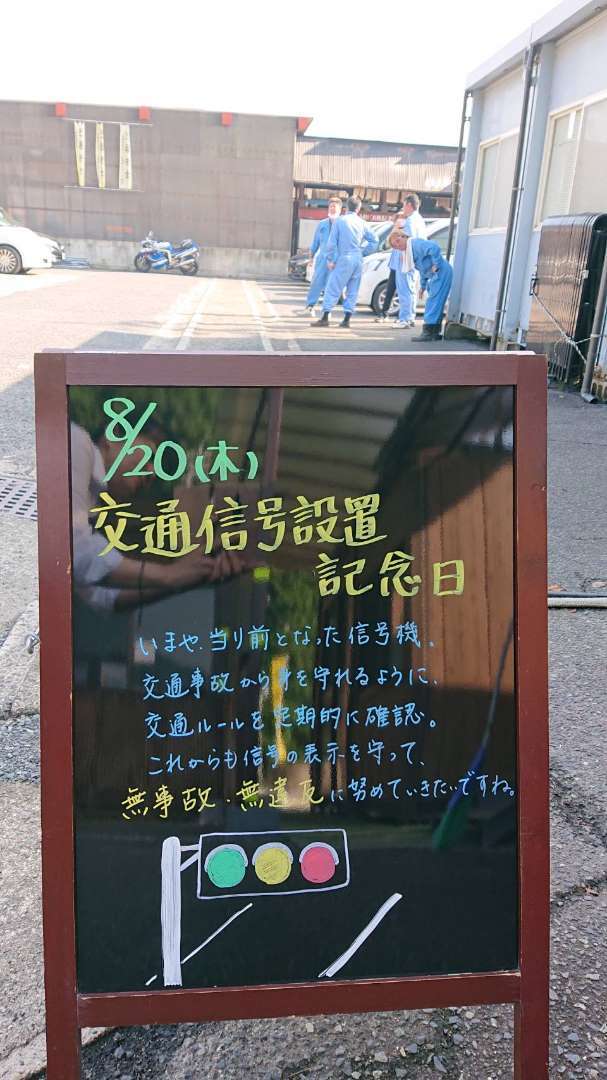 8/20(木)
交通信号設置
記念日
いまや、当り前となった信号機、
交通事故から身を守れるように、
交通ルールを定期的に確認。
これからも信号の表示を守って、
無事故・無違反に努めていきたいですね。